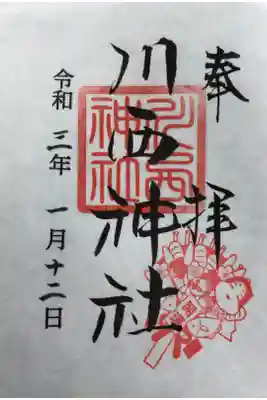 奉拝
川西神社
川西神社
令和三年一月十二日